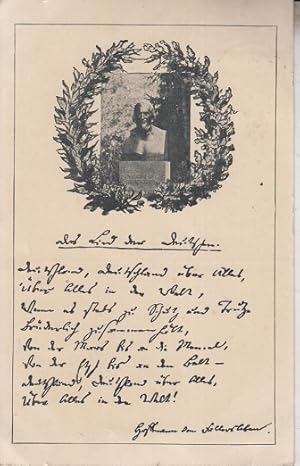 Das Lied der Deutschen.
Deutschland, Deutschland über Alles,
Über Alles in der Welt,
Wenn es stets zu Schutz und Trutze
Brüderlich zusammenhält,
Von der Maas bis an die Memel,
Von der Etsch bis an den Belt –
Deutschland, Deutschland über Alles,
Über Alles in der Welt!
Hoffmann von Fallersleben.